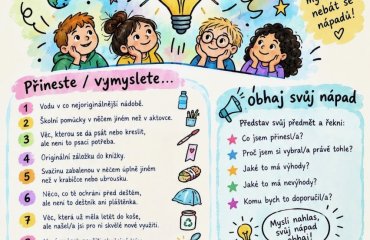 nebát se
nápadů!
Přineste / vymyslete...
1 Vodu v co nejoriginálnější nádobě.
2 Školní pomůcky v něčem jiném než v aktovce.
3 Věc, kterou se dá psát nebo kreslit,
ale není to psací potřeba.
4 Originální záložku do knížky.
5 Svačinu zabalenou v něčem úplně jiném
než v krabičce nebo ubrousku.
6 Něco, co tě ochrání před deštěm,
ale není to deštník ani pláštěnka.
7 Věc, která už měla letět do koše,
ale našel/a jsi pro ni skvělé nové využití.
obhaj svůj nápad
Představ svůj předmět a řekni:
Co jsem přinesl/a?
Proč jsem si vybral/a právě tohle?
Jaké to má výhody?
Jaké to má nevýhody?
Komu bych to doporučil/a?
Mysli nahlas,
svůj nápad
obhaj!